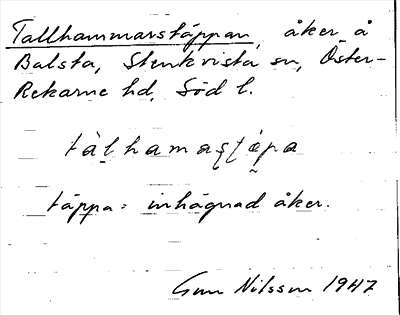 Tallhammarstäppan, åker å
Balsta, Stenkvista sn, Öster-
Rekarne hd, Söd l.
täppa = inhägnad åker.
Gun Nilsson 1947